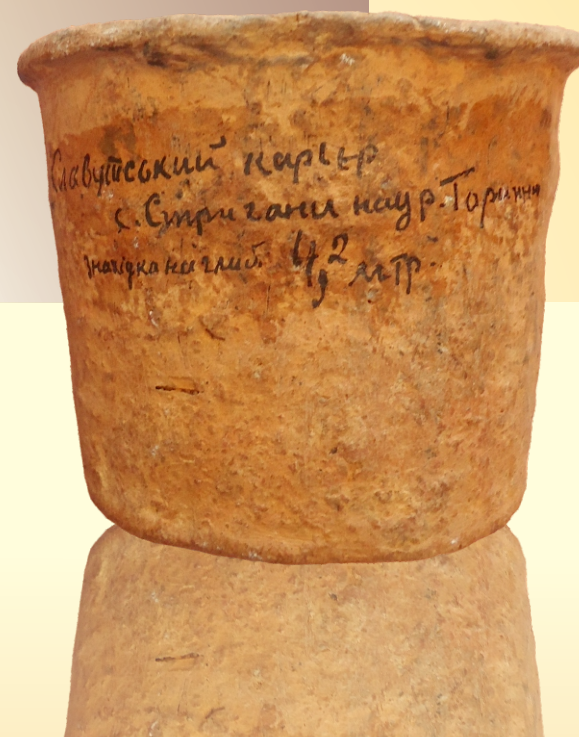 Славутський карієр
с. Стригани на ур. Торчин
знахідка на глиб. 4,2 мтр.